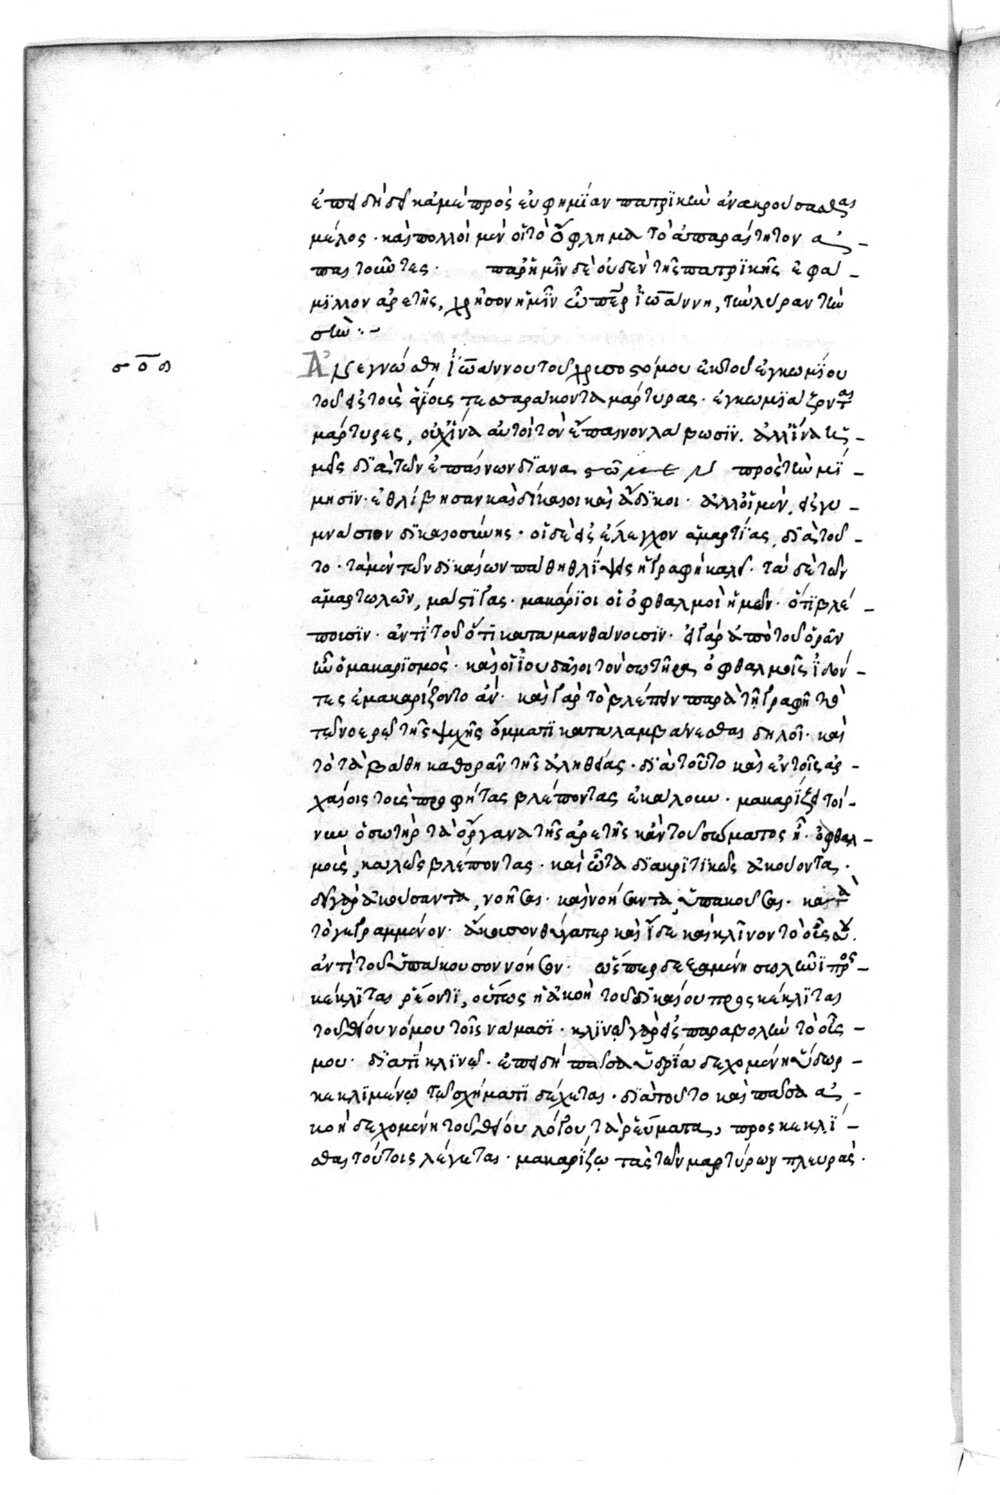 ἐπειδήδε κἀμὲ πρὸς εὐφημίαν πατρϊκὴν ἀνακρούσασθαι
μέλος · καὶ πολλοὶ μὲν οἱ τὸ ὄφλημα τὸ ἀπαραίτητον ἀ-
παιτοῦντες · παρ' ἡμῖν δὲ οὐδὲν τῆς πατρϊκῆς ἐφά-
μϊλλον ἀρετῆς, χρῆσον ἡμῖν ὦ πάτερ ἰωάννη, τὴν λύραν τὴν
σὴν · -
σοθ
Ἀνεγνώσθη ἰωάννου τοῦ χρυσοστόμου ἐκ τοῦ ἐγκωμίου
τοῦ εἰς τοὺς ἁγίους τεσσαράκοντα μάρτυρας · ἐγκωμιάζονται
μάρτυρες, οὐχ ἵνα αὐτοὶ τὸν ἔπαινον λάβωσϊν · ἀλλ' ἵνα ἡ-
μεῖς διὰ τῶν ἐπαίνων διαναστῶμεν πρὸς τὴν μί-
μησϊν · ἐθλίβησαν καὶ δίκαιοι καὶ ἄδϊκοι · ἀλλ' οἱ μὲν, εἰς γυ-
μνάσιον δϊκαιοσύνης · οἱ δὲ εἰς ἔλεγχον ἁμαρτίας, διὰ τοῦ-
το · τὰ μὲν τῶν δϊκαίων πάθη θλίψεις ἡ γραφὴ καλεῖ · τὰ δὲ τῶν
ἁμαρτωλῶν, μάστϊγας · μακάρϊοι οἱ ὀφθαλμοὶ ἡμῶν · ὅτϊ βλέ-
πουσϊν · ἀντὶ τοῦ ὅτϊ καταμανθάνουσϊν · εἰ γὰρ ἀπὸ τοῦ ὁρᾶν
ἦν ὁ μακαρϊσμὸς · καὶ οἱ ἰουδαῖοι τὸν σωτῆρα ὀφθαλμοῖς ἰδόν-
τες ἐμακαρίζοντο ἄν · καὶ γὰρ τὸ βλέπειν παρὰ τῇ γραφῇ τὸ
τῷ νοερῷ τῆς ψυχῆς ὄμματϊ καταλαμβάνεσθαι δηλοῖ · καὶ
τὸ τὰ βάθη καθορᾶν τῆς ἀληθείας · διὰ τοῦτο καὶ ἐν τοῖς ἀρ-
χαίοις τοὺς προφήτας βλέποντας ἐκάλουν · μακαρίζει τοί-
νυν ὁ σωτὴρ τὰ ὄργανα τῆς ἀρετῆς κἂν τοῦ σώματος ᾖ · ὀφθαλ-
μοὺς, καλῶς βλέποντας · καὶ ὦτα διακρϊτϊκῶς ἀκούοντα ·
δεῖ γὰρ ἀκούσαντα, νοῆσαι · καὶ νοήσαντα, ὑπακοῦσαι · κατὰ
τὸ γεγραμμένον · ἄκουσον θύγατερ καὶ ἴδε καὶ κλῖνον τὸ οὖς σου ·
ἀντὶ τοῦ ὑπάκουσον νόησον · ὥσπερ δεξαμένη σωλῆνϊ προσ-
κέκλϊται ῥέοντϊ, οὕτως ἡ ἀκοὴ τοῦ δϊκαίου προσκέκλϊται
τοῦ θείου νόμου τοῖς νάμασϊ · κλϊνῶ γὰρ εἰς παραβολὴν τὸ οὖς
μου · διατί κλϊνῶ · ἐπειδὴ πᾶσα ὑδρία δεχομένη ὕδωρ
κεκλϊμένῳ τῷ σχήματϊ δέχεται · διὰ τοῦτο καὶ πᾶσα ἀ-
κοὴ δεχομένη τοῦ θείου λόγου τὰ ῥεύματα, προσκεκλί-
σθαι τούτοις λέγεται · μακαρίζω τὰς τῶν μαρτύρων πλευράς ·